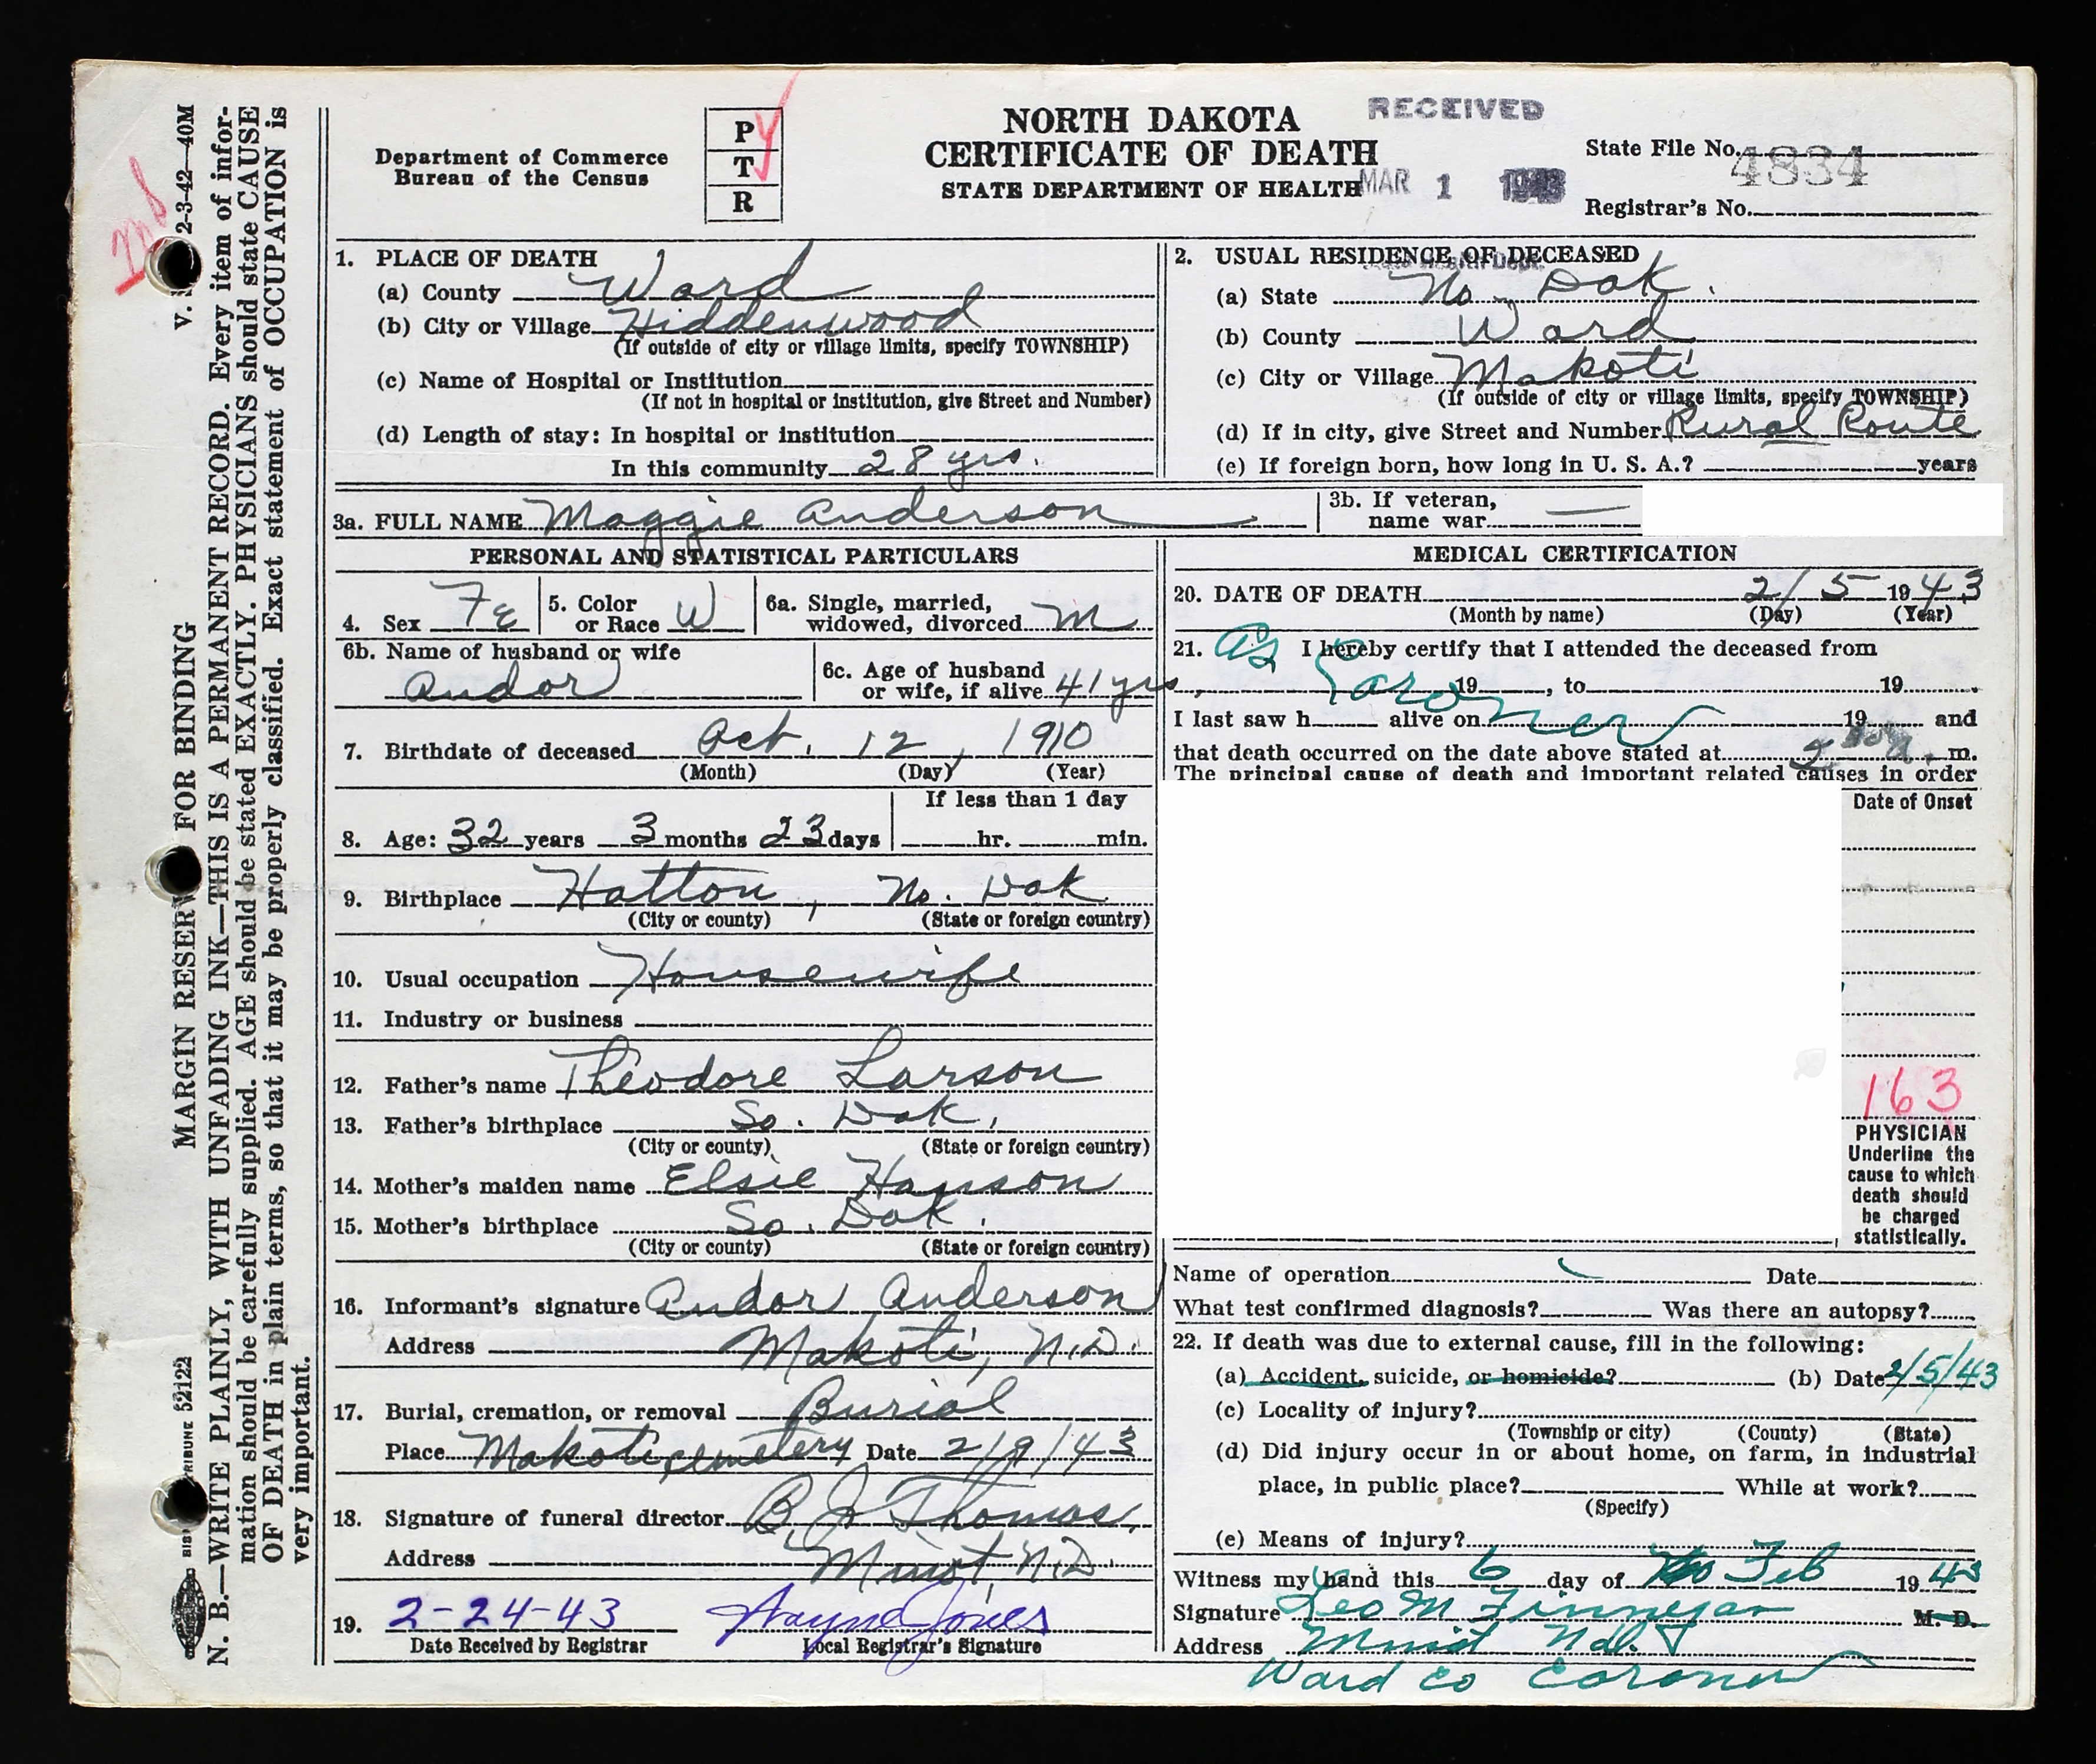 V. S. 2-3-42-40M
MARGIN RESERV FOR BINDING
N. B.—WRITE PLAINLY, WITH UNFADING INK—THIS IS A PERMANENT RECORD. Every item of infor-
mation should be carefully supplied. AGE should be stated EXACTLY. PHYSICIANS should state CAUSE
OF DEATH in plain terms, so that it may be properly classified. Exact statement of OCCUPATION is
very important.
Department of Commerce
Bureau of the Census
P
T
R
NORTH DAKOTA
CERTIFICATE OF DEATH
STATE DEPARTMENT OF HEALTH
RECEIVED
MAR 1 1943
State File No. 4834
Registrar's No.
1. PLACE OF DEATH
(a) County Ward
(b) City or Village Hiddenwood
(If outside of city or village limits, specify TOWNSHIP)
(c) Name of Hospital or Institution
(If not in hospital or institution, give Street and Number)
(d) Length of stay: In hospital or institution
In this community 28 yrs.
2. USUAL RESIDENCE OF DECEASED
(a) State No. Dak.
(b) County Ward
(c) City or Village Makoti
(If outside of city or village limits, specify TOWNSHIP)
(d) If in city, give Street and Number Rural Route
(e) If foreign born, how long in U. S. A.? years
3a. FULL NAME Maggie Anderson
3b. If veteran,
name war —
PERSONAL AND STATISTICAL PARTICULARS
4. Sex Fe
5. Color
or Race W
6a. Single, married,
widowed, divorced M
6b. Name of husband or wife
Andor
6c. Age of husband
or wife, if alive 41 yrs.
7. Birthdate of deceased Oct. 12, 1910
(Month) (Day) (Year)
8. Age: 32 years 3 months 23 days
If less than 1 day
hr. min.
9. Birthplace Hatton, No. Dak
(City or county) (State or foreign country)
10. Usual occupation Housewife
11. Industry or business
12. Father's name Theodore Larson
13. Father's birthplace So. Dak.
(City or county) (State or foreign country)
14. Mother's maiden name Elsie Hanson
15. Mother's birthplace So. Dak.
(City or county) (State or foreign country)
16. Informant's signature Andor Anderson
Address Makoti, N.D.
17. Burial, cremation, or removal Burial
Place Makoti cemetery Date 2/9/43
18. Signature of funeral director B. J. Thomas,
Address Minot, N.D.
19. 2-24-43 Wayne Jones
Date Received by Registrar Local Registrar's Signature
MEDICAL CERTIFICATION
20. DATE OF DEATH 2/5 1943
(Month by name) (Day) (Year)
21. As I hereby certify that I attended the deceased from
Coroner 19 , to 19 .
I last saw h alive on 19 and
that death occurred on the date above stated at a. m.
The principal cause of death and important related causes in order
Date of Onset
163
PHYSICIAN
Underline the
cause to which
death should
be charged
statistically.
Name of operation Date
What test confirmed diagnosis? Was there an autopsy?
22. If death was due to external cause, fill in the following:
(a) Accident, suicide, or homicide? (b) Date 2/5/43
(c) Locality of injury?
(Township or city) (County) (State)
(d) Did injury occur in or about home, on farm, in industrial
place, in public place? While at work?
(Specify)
(e) Means of injury?
Witness my hand this 6 day of Feb 1943
Signature Leo M Finnegan M. D.
Address Minot
Ward Co Coroner